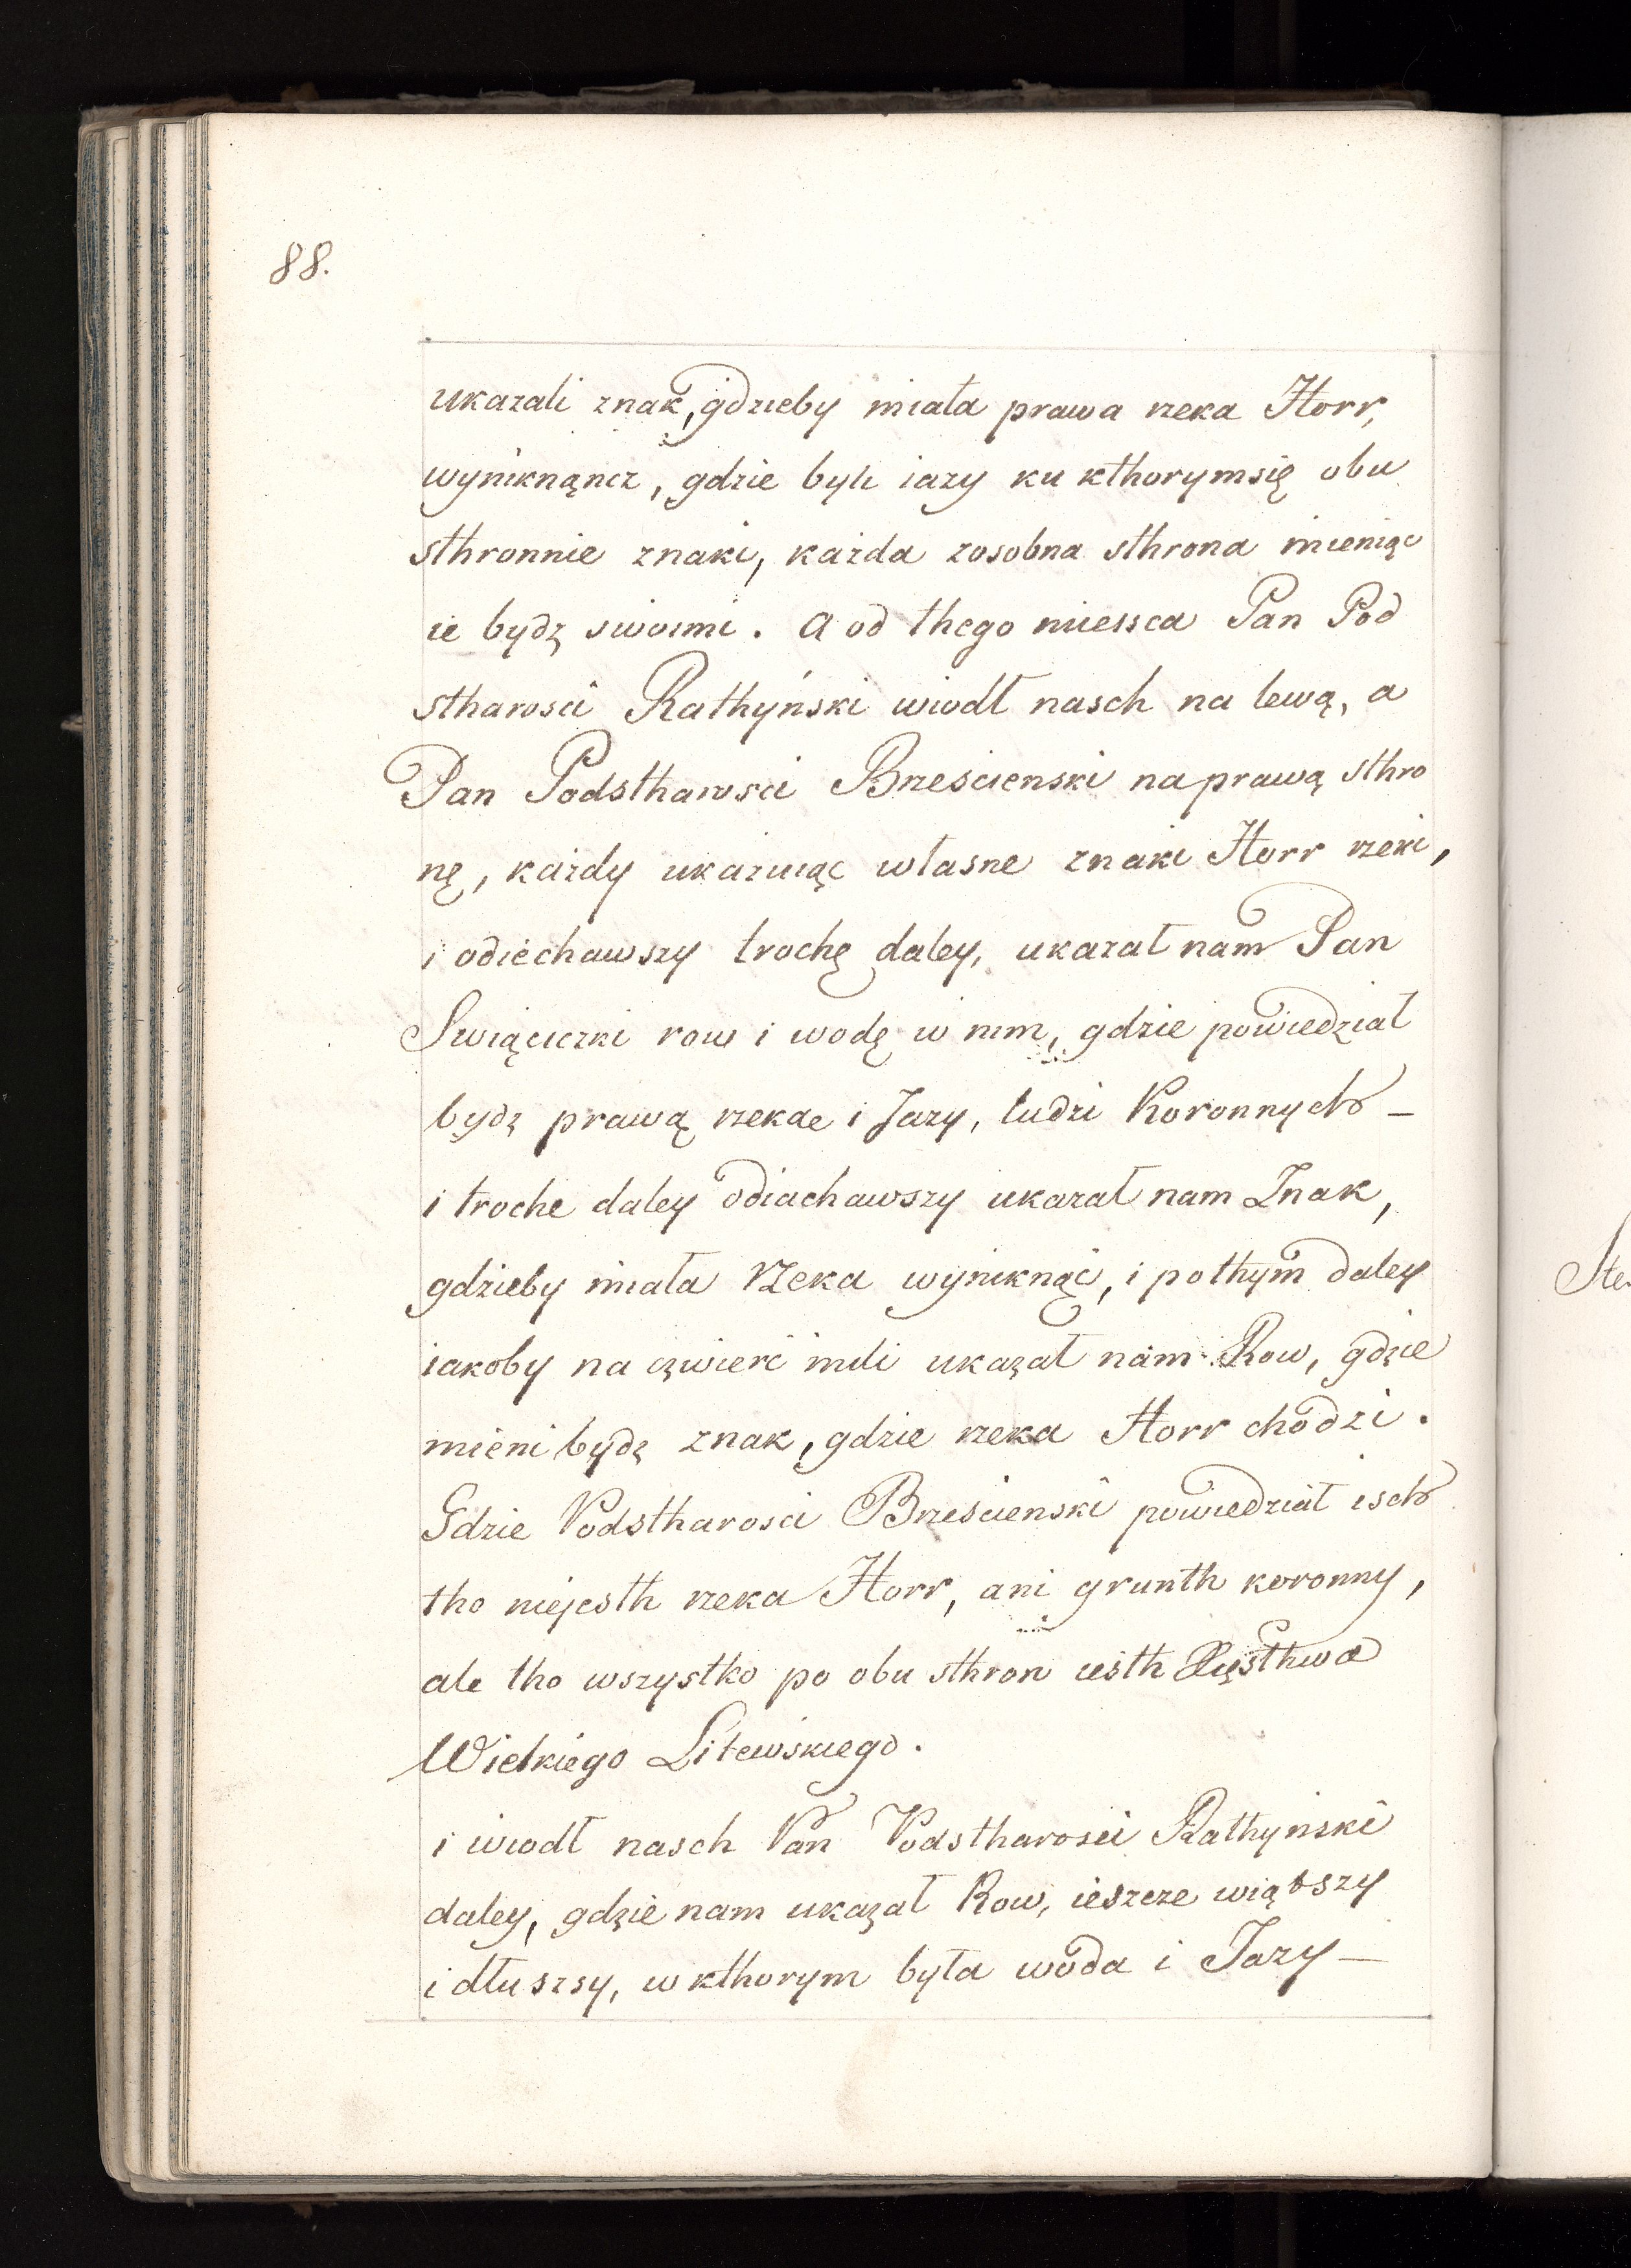 88.
ukazali znak, gdzieby miała prawa rzeka Horr,
wyniknąncz, gdzie byli iazy ku kthorymsię obu
sthronnie znaki, każda zosobna sthrona mieniąc
ie bydź swoimi. A od thego miessca Pan Pod
stharosci Rathyński wiodł nasch na lewą, a
Pan Podstharosci Brzescienski na prawą sthro
nę, każdy ukazuiąc własne znaki Horr rzeki,
i odiechawszy trochę daley, ukazał nam Pan
Swięciczki row i wodę w nim, gdzie powiedział
bydź prawą rzekae i Jazy, ludzi Koronnych –
i troche daley odiachawszy ukazał nam Znak,
gdzieby miała rzeka wyniknąć, i pothym daley
iakoby na czwierć mili ukazał nam Row, gdzie
mieni bydź znak, gdzie rzeka Horr chodzi.
Gdzie Podstharosci Brzescienski powiedział isch
tho niejesth rzeka Horr, ani grunth koronny,
ale tho wszystko po obu sthron iesth Xięsthwa
Wielkiego Litewskiego.
i wiodł nasch Pan Podstharosci Rathyński
daley, gdzie nam ukazał Row, ieszcze wiątszy
i dłuszsy, w kthorym była woda i Jazy –